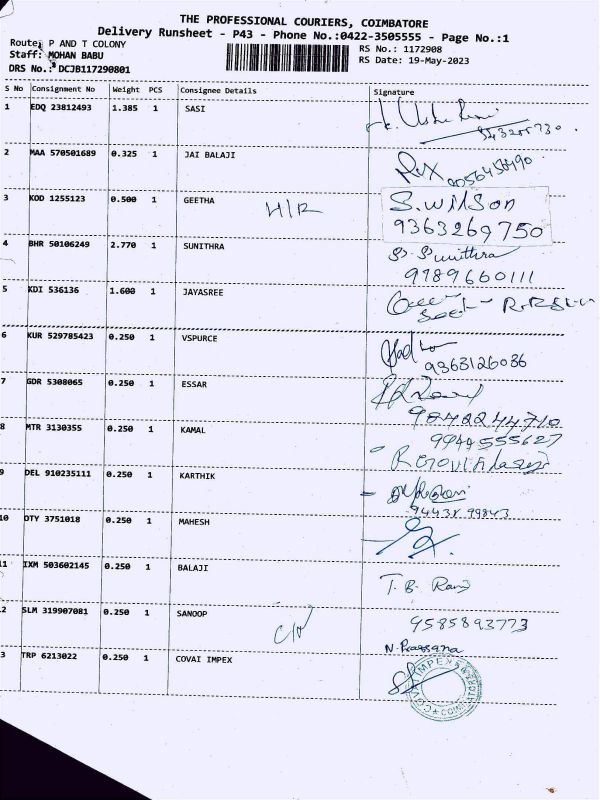 THE PROFESSIONAL COURIERS, COIMBATORE
Delivery Runsheet - P43 - Phone No.:0422-3505555 - Page No.:1
Route: P AND T COLONY
Staff: MOHAN BABU
DRS No.: DCJB117290801
RS No.: 1172908
RS Date: 19-May-2023
S No Consignment No Weight PCS Consignee Details Signature
1 EDQ 23812493 1.385 1 SASI
2 MAA 570501689 0.325 1 JAI BALAJI
3 KOD 1255123 0.500 1 GEETHA H/R S.Wilson
9363269750
4 BHR 50106249 2.770 1 SUNITHRA S. Sunithra
9789660111
5 KDI 536136 1.600 1 JAYASREE
6 KUR 529785423 0.250 1 VSPURCE
9363126036
7 GDR 5308065 0.250 1 ESSAR
9842244710
8 MTR 3130355 0.250 1 KAMAL 9944555627
9 DEL 910235111 0.250 1 KARTHIK
94438 99843
10 DTY 3751018 0.250 1 MAHESH
11 IXM 503602145 0.250 1 BALAJI T. B. Ravi
2 SLM 319907081 0.250 1 SANOOP 9585893773
N. Prassana
3 TRP 6213022 0.250 1 COVAI IMPEX